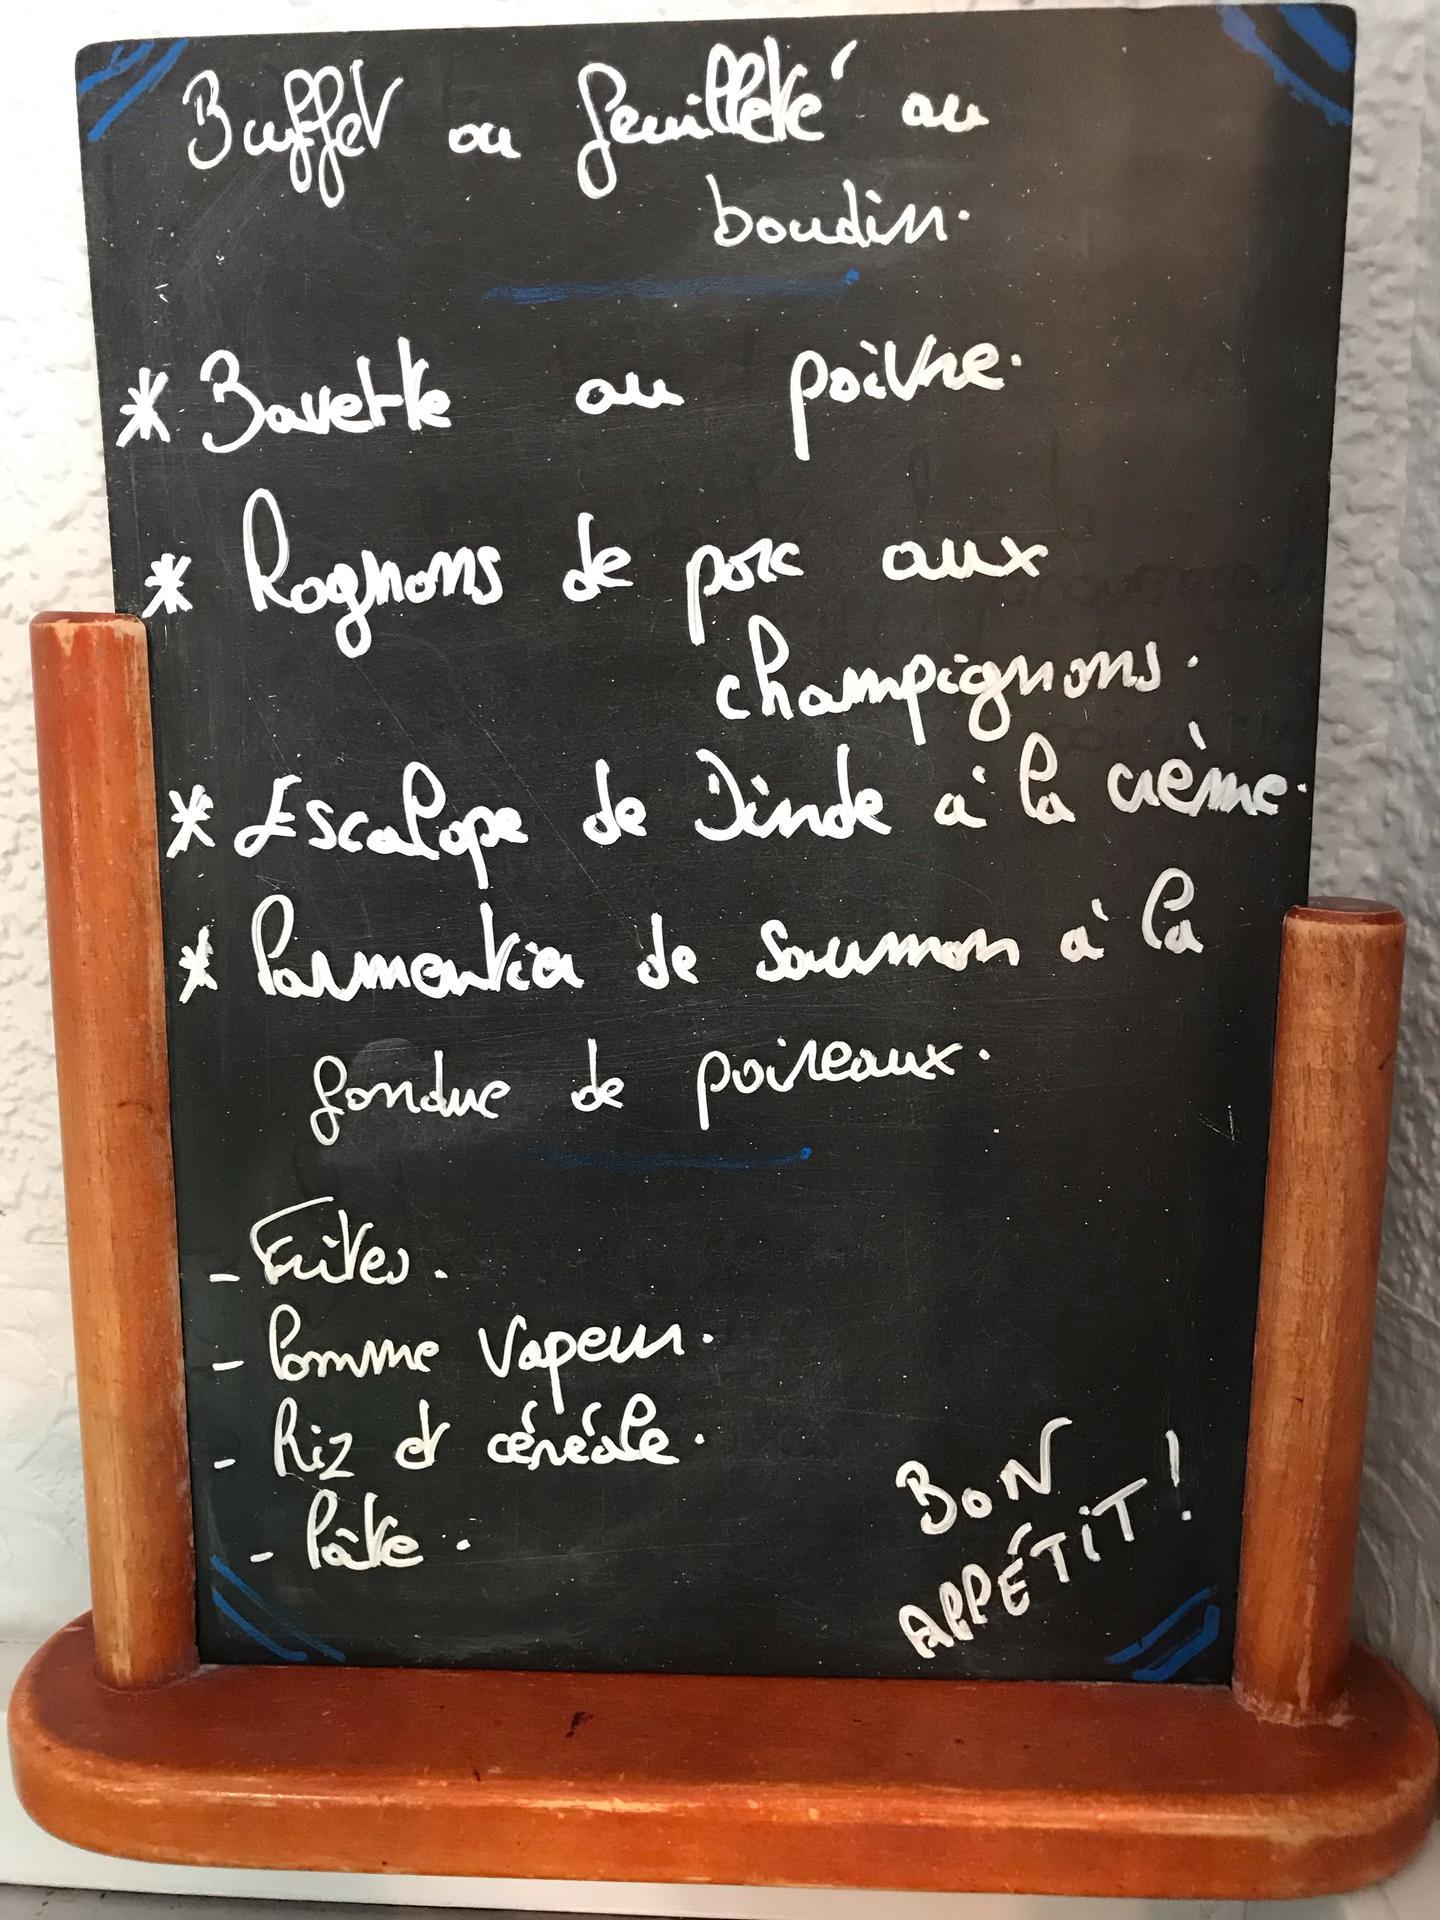 Buffet ou feuilleté au
boudin.
* Bavette au poivre.
* Rognons de porc aux
champignons.
* Escalope de Dinde à la crème.
* Parmentier de saumon à la
fondue de poireaux.
- Frites.
- Pomme vapeur.
- Riz et céréale.
- Pâte.
BON
APPÉTIT !